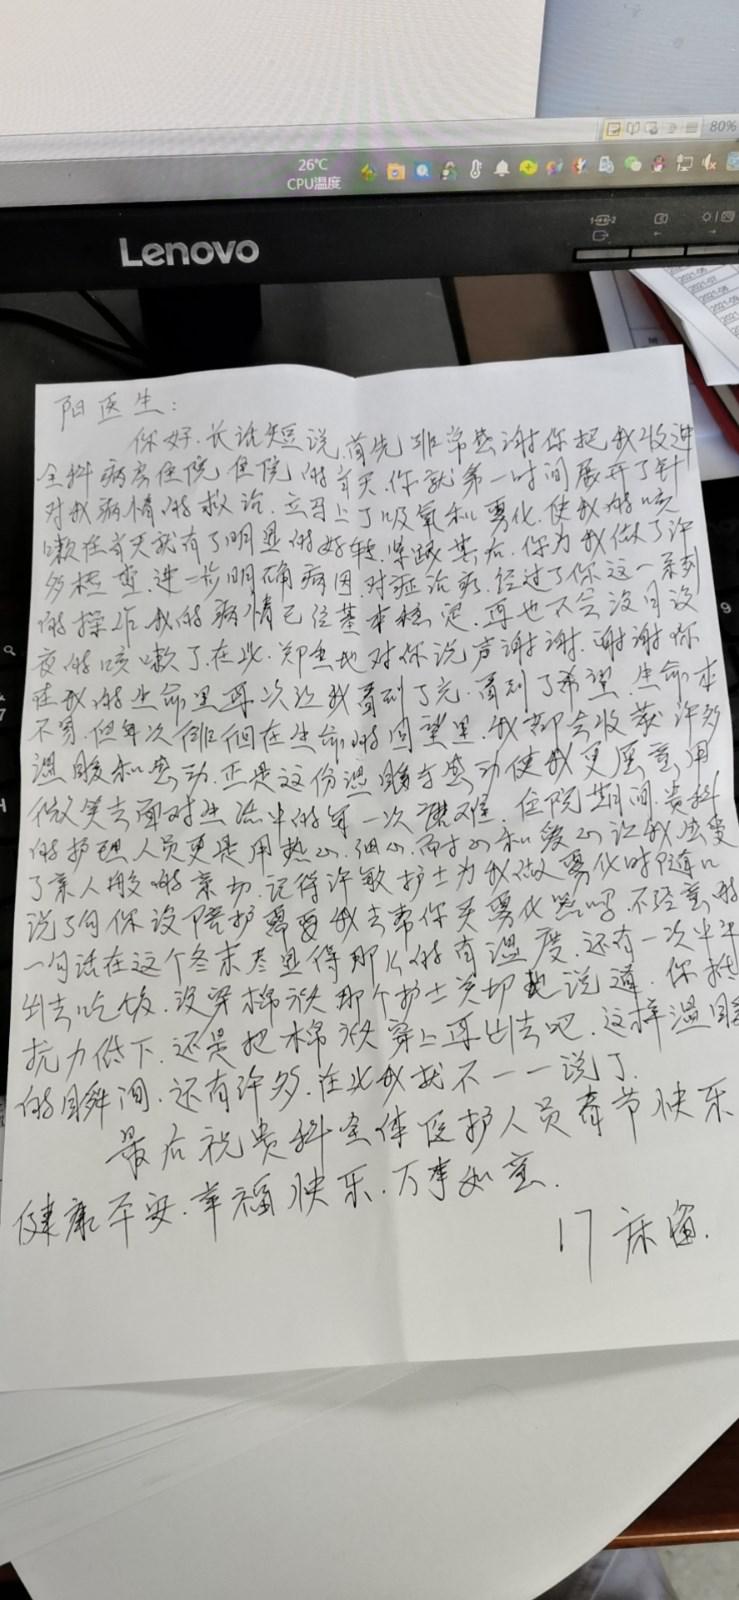 80%
26℃
CPU温度
Lenovo
阳医生:
你好.长话短说.首先非常感谢你把我收进
全科病房住院.住院的首天.你就第一时间展开了针
对我病情的救治.立马上了吸氧和雾化.使我的咳
嗽在首天就有了明显的好转.紧跟其后.你为我做了许
多检查.进一步明确病因.对症治疗.经过了你这一系列
的操作.我的病情已经基本稳定.再也不会没日没
夜的咳嗽了.在此.郑重地对你说声谢谢.谢谢你
在我的生命里再次让我看到了光.看到了希望.生命本
不易.但每次徘徊在生命的回望里.我都会收获许多
温暖和感动.正是这份温暖与感动使我更愿意用
微笑去面对生活中的每一次磨难.住院期间.贵科
的护理人员更是用热心.细心.耐心和爱心让我感受
了亲人般的亲切.记得许敏护士为我做雾化时随口
说了句你没陪护需要我去帮你买雾化器吗.不经意的
一句话在这个冬末尽显得那么的有温度.还有一次中午
出去吃饭.没穿棉袄那个护士关切地说道.你抵
抗力低下.还是把棉袄穿上再出去吧.这样温暖
的瞬间.还有许多.在此我就不一一说了.
最后祝贵科全体医护人员春节快乐
健康平安.幸福快乐.万事如意.
17床留.